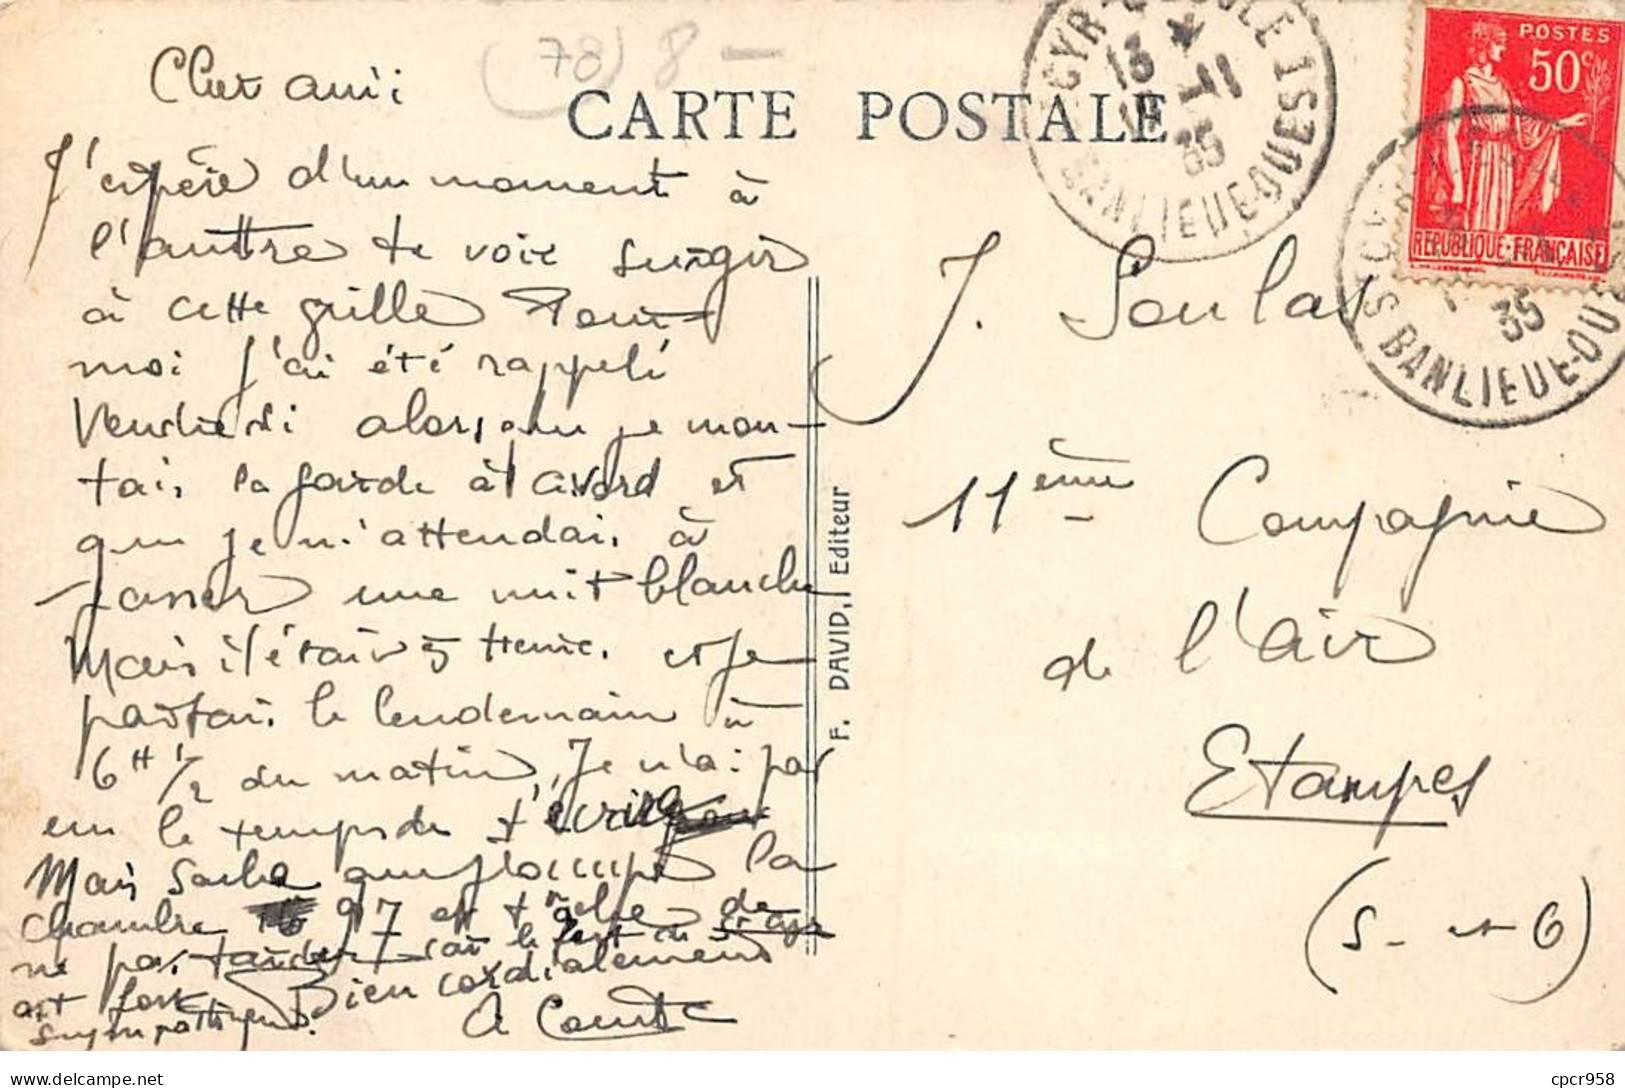 (78) 8 -
CARTE POSTALE
Cher ami
J'espère d'un moment à
l'auttre te voir surgir
à cette grille Pour
moi j'ai été rappelé
Vendredi alors que je mon-
tais la garde à Avord et
que je m'attendais à
passer une nuit blanche
Mais il était 5 Heures et je
partais le lendemain à
6H 1/2 du matin, Je n'ai pas
eu le temps de t'écrire
Mais sache que j'occupe la
chambre 97 et
ne pas tarder car le
est fort
sympathique. Bien cordialement
A Comte
F. DAVID, Editeur
POSTES
50c
REPUBLIQUE-FRANÇAISE
CYR-L'ECOLE
13
1-11
35
BANLIEUE-OUEST
35
BANLIEUE-OUEST
J. Soulas
11ème Compagnie
de l'air
Etampes
(S- et O)
cpcr958